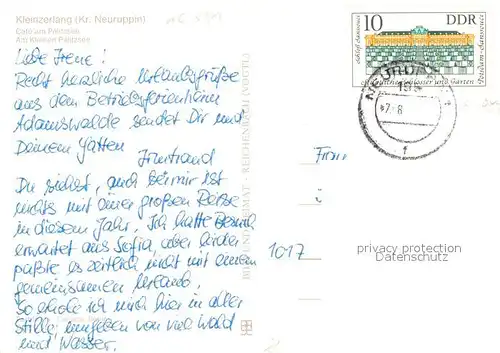 Kleinzerlang (Kr. Neuruppin)
Café am Pälitzsee
Am Kleinen Pälitzsee
Liebe Irene!
Recht herzliche Urlaubsgrüße
aus dem Betriebsferienheim
Adamswalde sendet Dir und
Deinem Gatten
Irmtraud
Du siehst, auch bei mir ist
nichts mit einer großen Reise
in diesem Jahr. Ich hatte Besuch
erwartet aus Sofia, aber leider
paßte es zeitlich nicht mit einem
gemeinsamen Urlaub.
So erhole ich mich hier in aller
Stille, umgeben von viel Wald
und Wasser.
BILD UND HEIMAT · REICHENBACH (VOGTL)
10 DDR
Schloß Sanssouci
Staatliche Schlösser und Gärten
Potsdam-Sanssouci
Frau
1017
privacy protection
Datenschutz